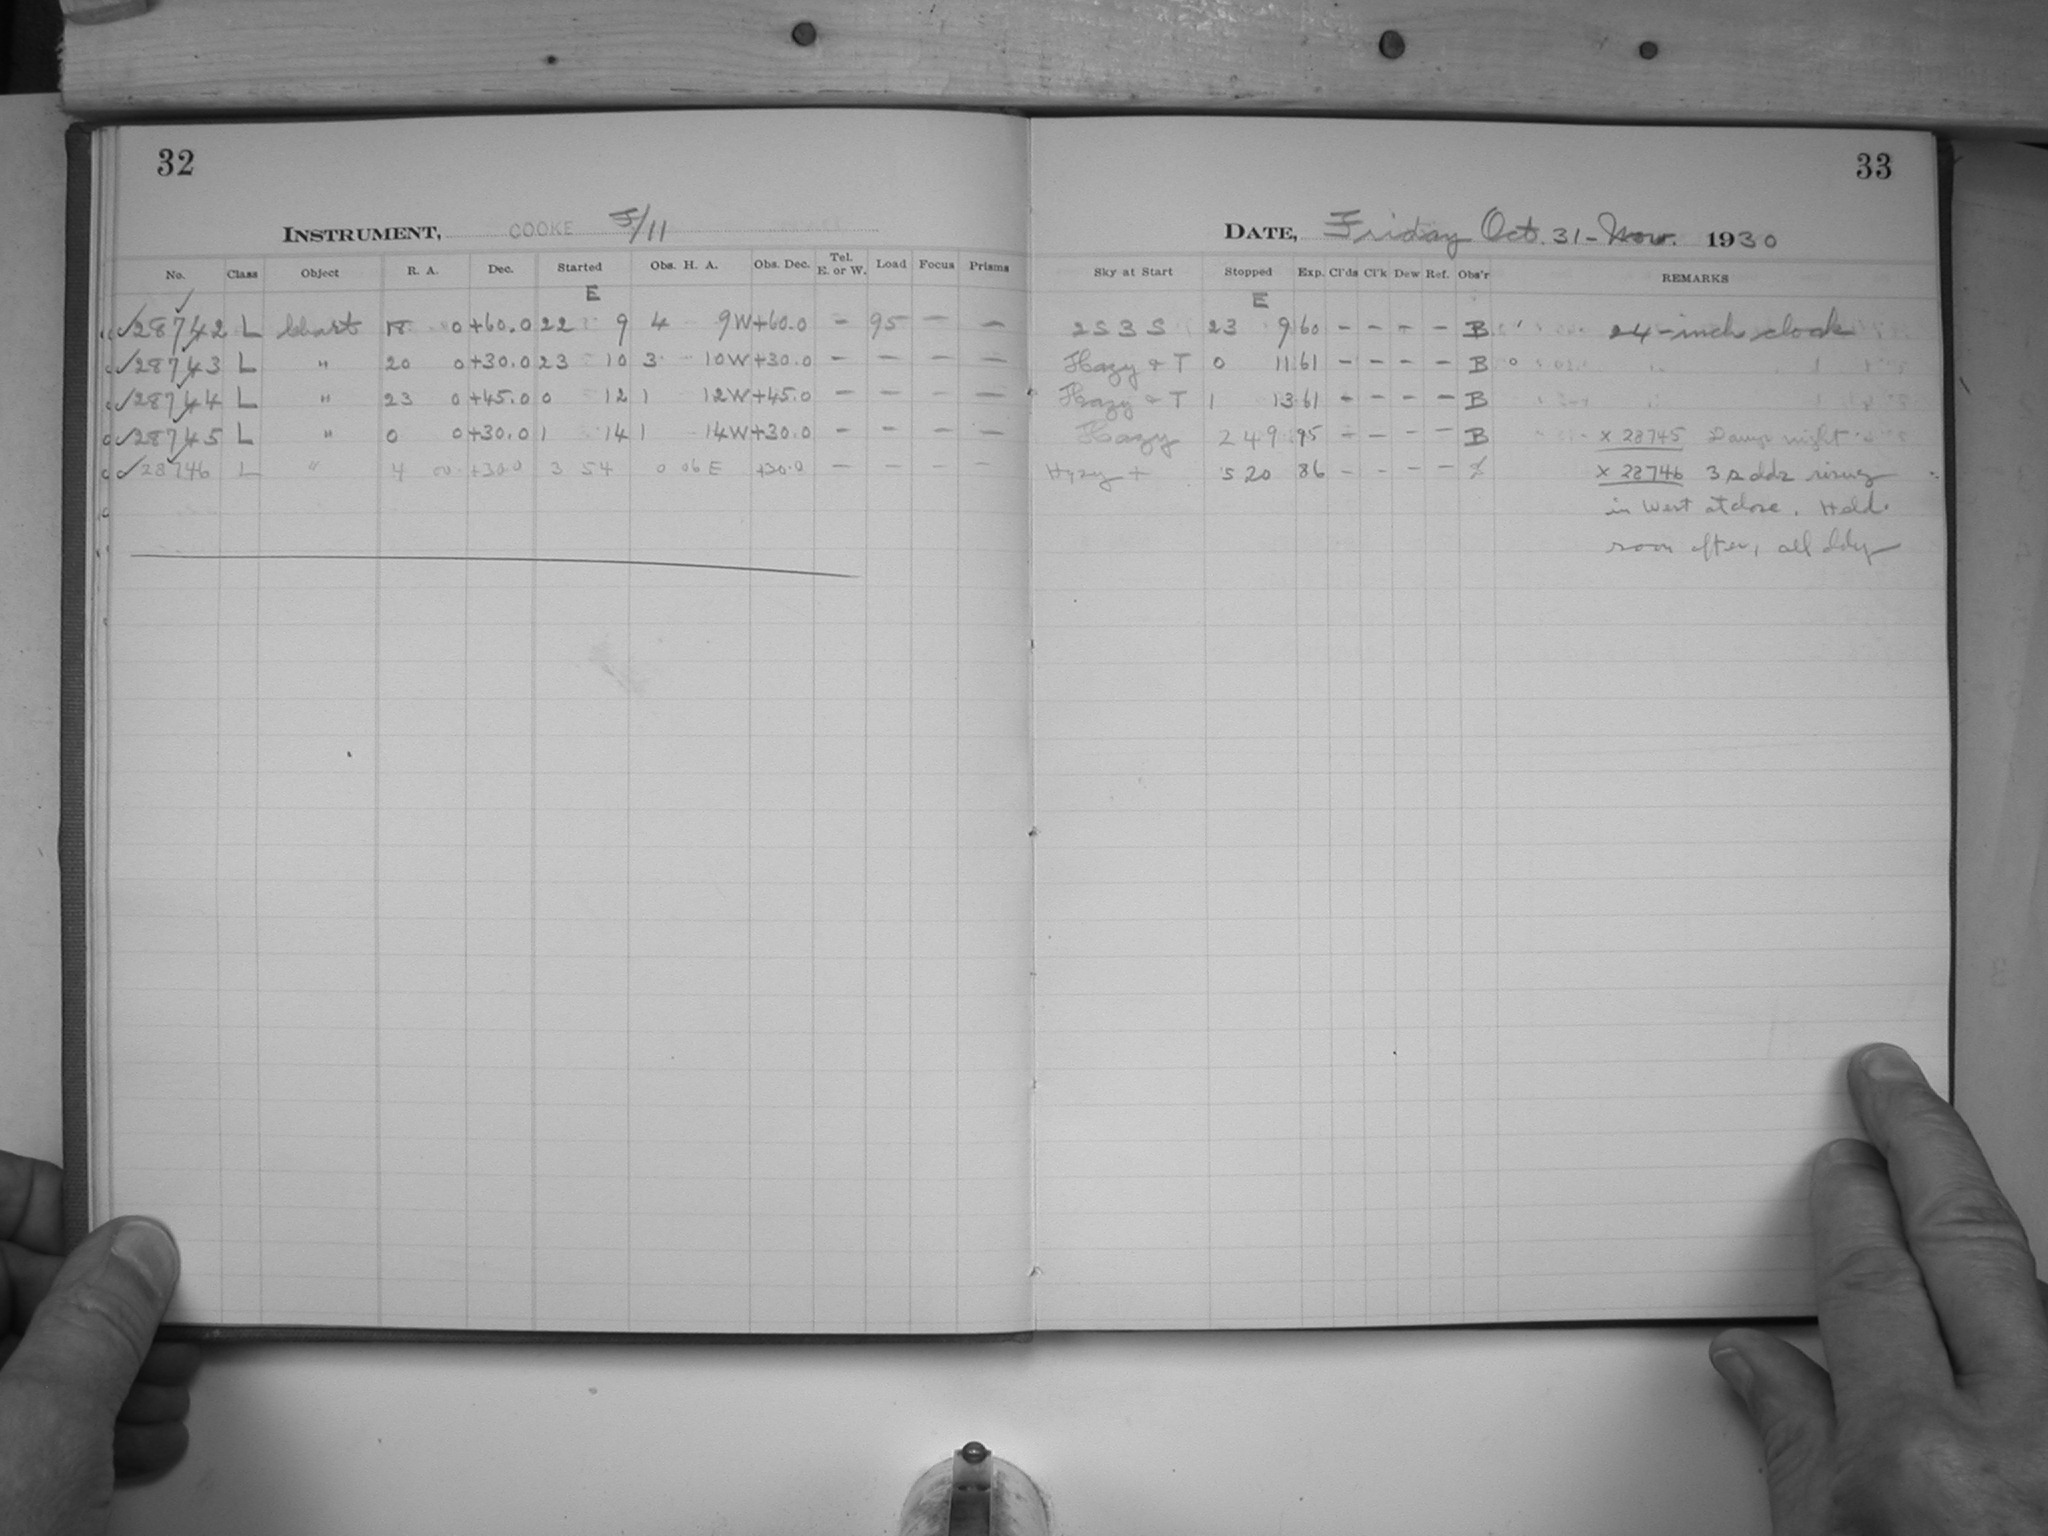 32
INSTRUMENT, COOKE F/11
No. Class Object R. A. Dec. Started Obs. H. A. Obs. Dec. Tel. E. or W. Load Focus Prisms
E
✓28742 L Chart 18 0 +60.0 22 9 4 9W +60.0 - 95 - -
✓28743 L " 20 0 +30.0 23 10 3 10W +30.0 - - - -
✓28744 L " 23 0 +45.0 0 12 1 12W +45.0 - - - -
✓28745 L " 0 0 +30.0 1 14 1 14W +30.0 - - - -
✓28746 L " 4 00 +30.0 3 54 0 06 E +30.0 - - - -
33
DATE, Friday Oct. 31 - Nov. 1930
Sky at Start Stopped Exp. Cl'ds Cl'k Dew Ref. Obs'r REMARKS
E
2S3S 23 9 60 - - - - B 24-inch clock
Hazy + T 0 11 61 - - - - B
Hazy + T 1 13 61 - - - - B
Hazy 2 49 95 - - - - B x 28745 Damp night
Hazy + 5 20 86 - - - - x 28746 3 rising
in West at close. Held
soon after, all cldy